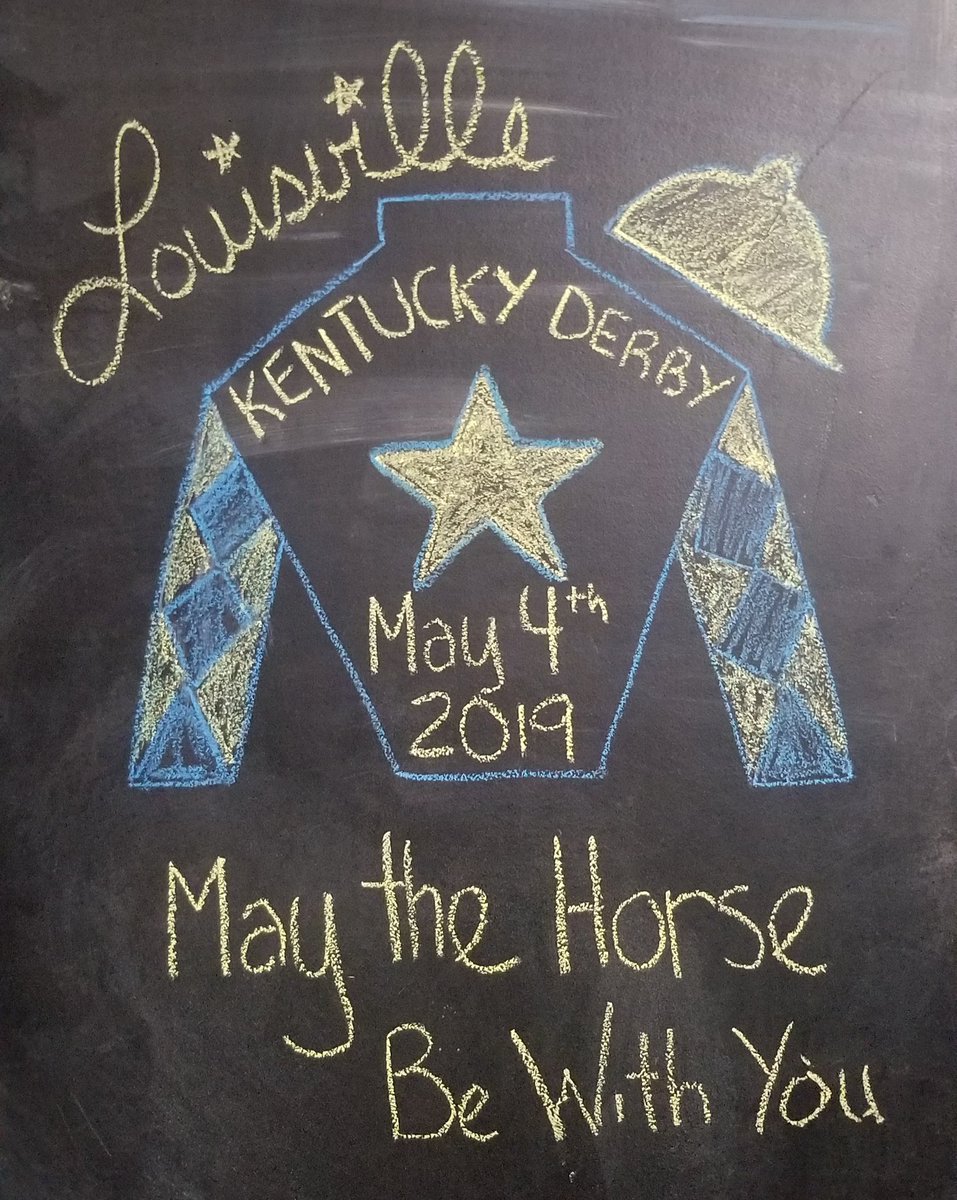 Louisville
KENTUCKY DERBY
May 4th
2019
May the Horse
Be With You